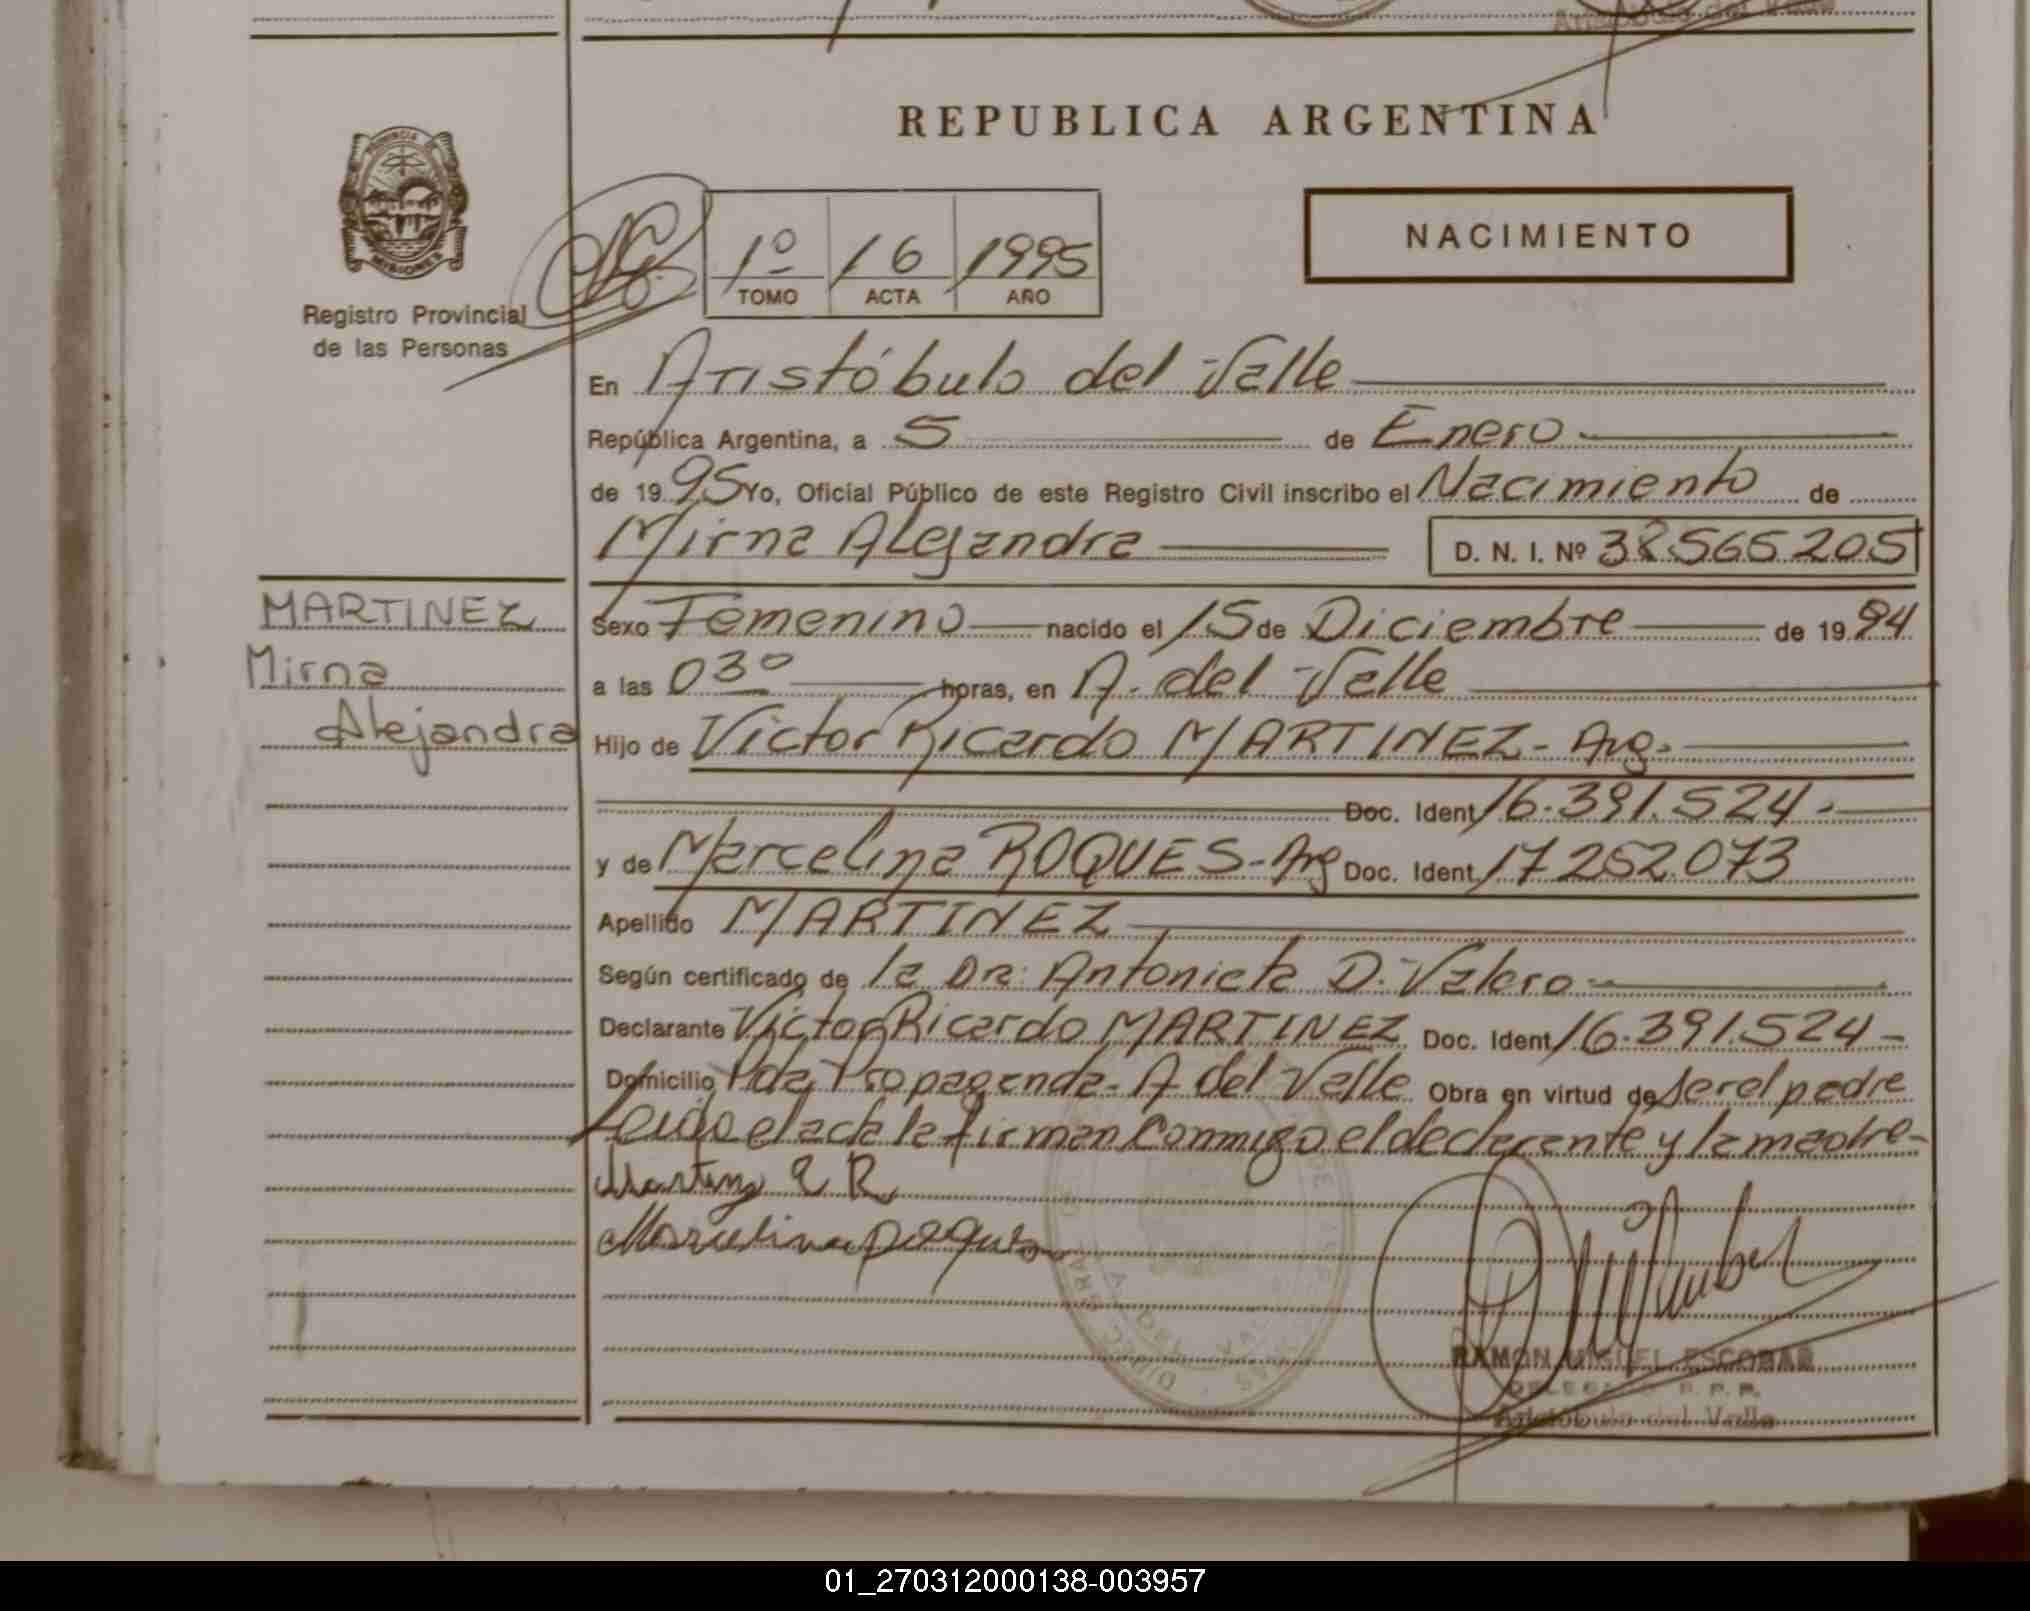 REPUBLICA ARGENTINA
PROVINCIA DE
MISIONES
Registro Provincial
de las Personas
1º 16 1995
TOMO ACTA AÑO
NACIMIENTO
En Aristóbulo del Valle
República Argentina, a 5 de Enero
de 1995 Yo, Oficial Público de este Registro Civil inscribo el Nacimiento de
Mirna Alejandra D. N. I. Nº 38565205
MARTINEZ
Mirna
Alejandra
Sexo Femenino nacido el 15 de Diciembre de 1994
a las 03º horas, en A. del Valle
Hijo de Victor Ricardo MARTINEZ - Arg.
Doc. Ident. 16.391.524.
y de Marcelina ROQUES - Arg Doc. Ident. 17252.073
Apellido MARTINEZ
Según certificado de la Dra: Antonieta D. Valero
Declarante Victor Ricardo MARTINEZ Doc. Ident 16.391.524
Domicilio Pda Propaganda - A del Valle Obra en virtud de ser el padre
Leida el acta la firman conmigo el declarante y la madre
Marcelina roques
RAMON MIGUEL ESCOBAR
DELEGADO R. P. P.
Aristóbulo del Valle
01_270312000138-003957